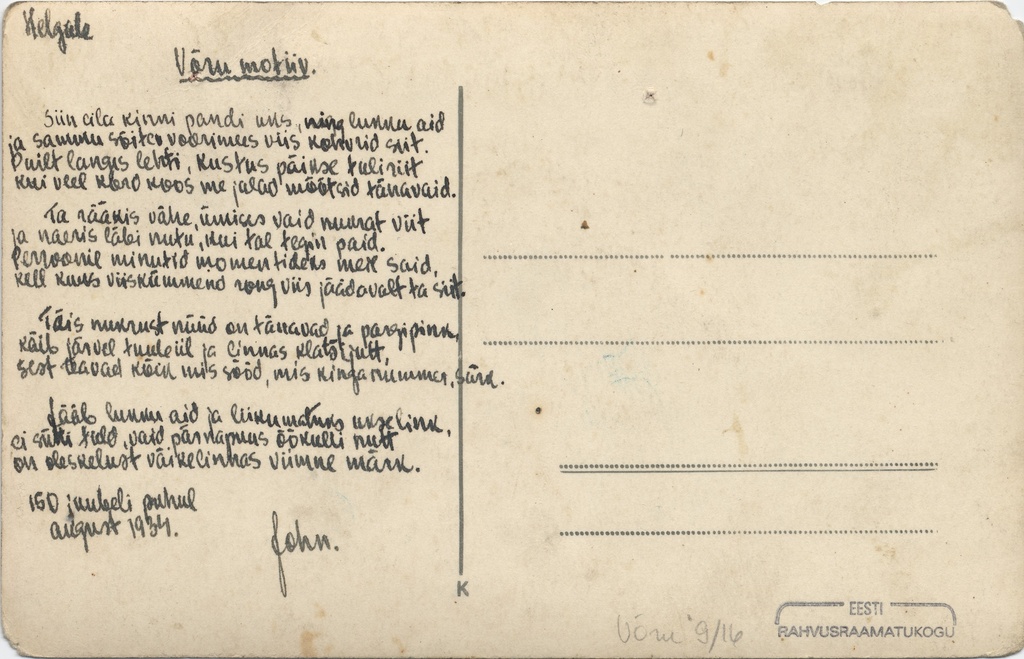 Helgale
Võru motiiv.
Siin eila kinni pandi uks, ning lukku aid
ja sammu sõitev voorimees viis kohvrid siit.
Puilt langes lehti, kustus päikse tuliriit
kui veel kord koos me jalad mõõtsid tänavaid.
Ta rääkis vähe, ümises vaid nukrat viit
ja naeris läbi nutu, kui tal tegin paid.
Perroonil minutid momentideks meil said,
kell kuus viiskümmend rong viis jäädavalt ta siit.
Täis nukrust nüüd on tänavad ja pargipink,
käib järvel tuuleiil ja linnas klatš ja jutt,
sest teavad kõik mis sööd, mis kinganummer, särk.
Jääb lukku aid ja liikumatuks ukselink,
ei süüta tuld, vaid pärnapuus öökulli nutt
on oleskelust väikelinnas viimne märk.
150 juubeli puhul
august 1934.
John.
K
Võru 9/16
EESTI
RAHVUSRAAMATUKOGU